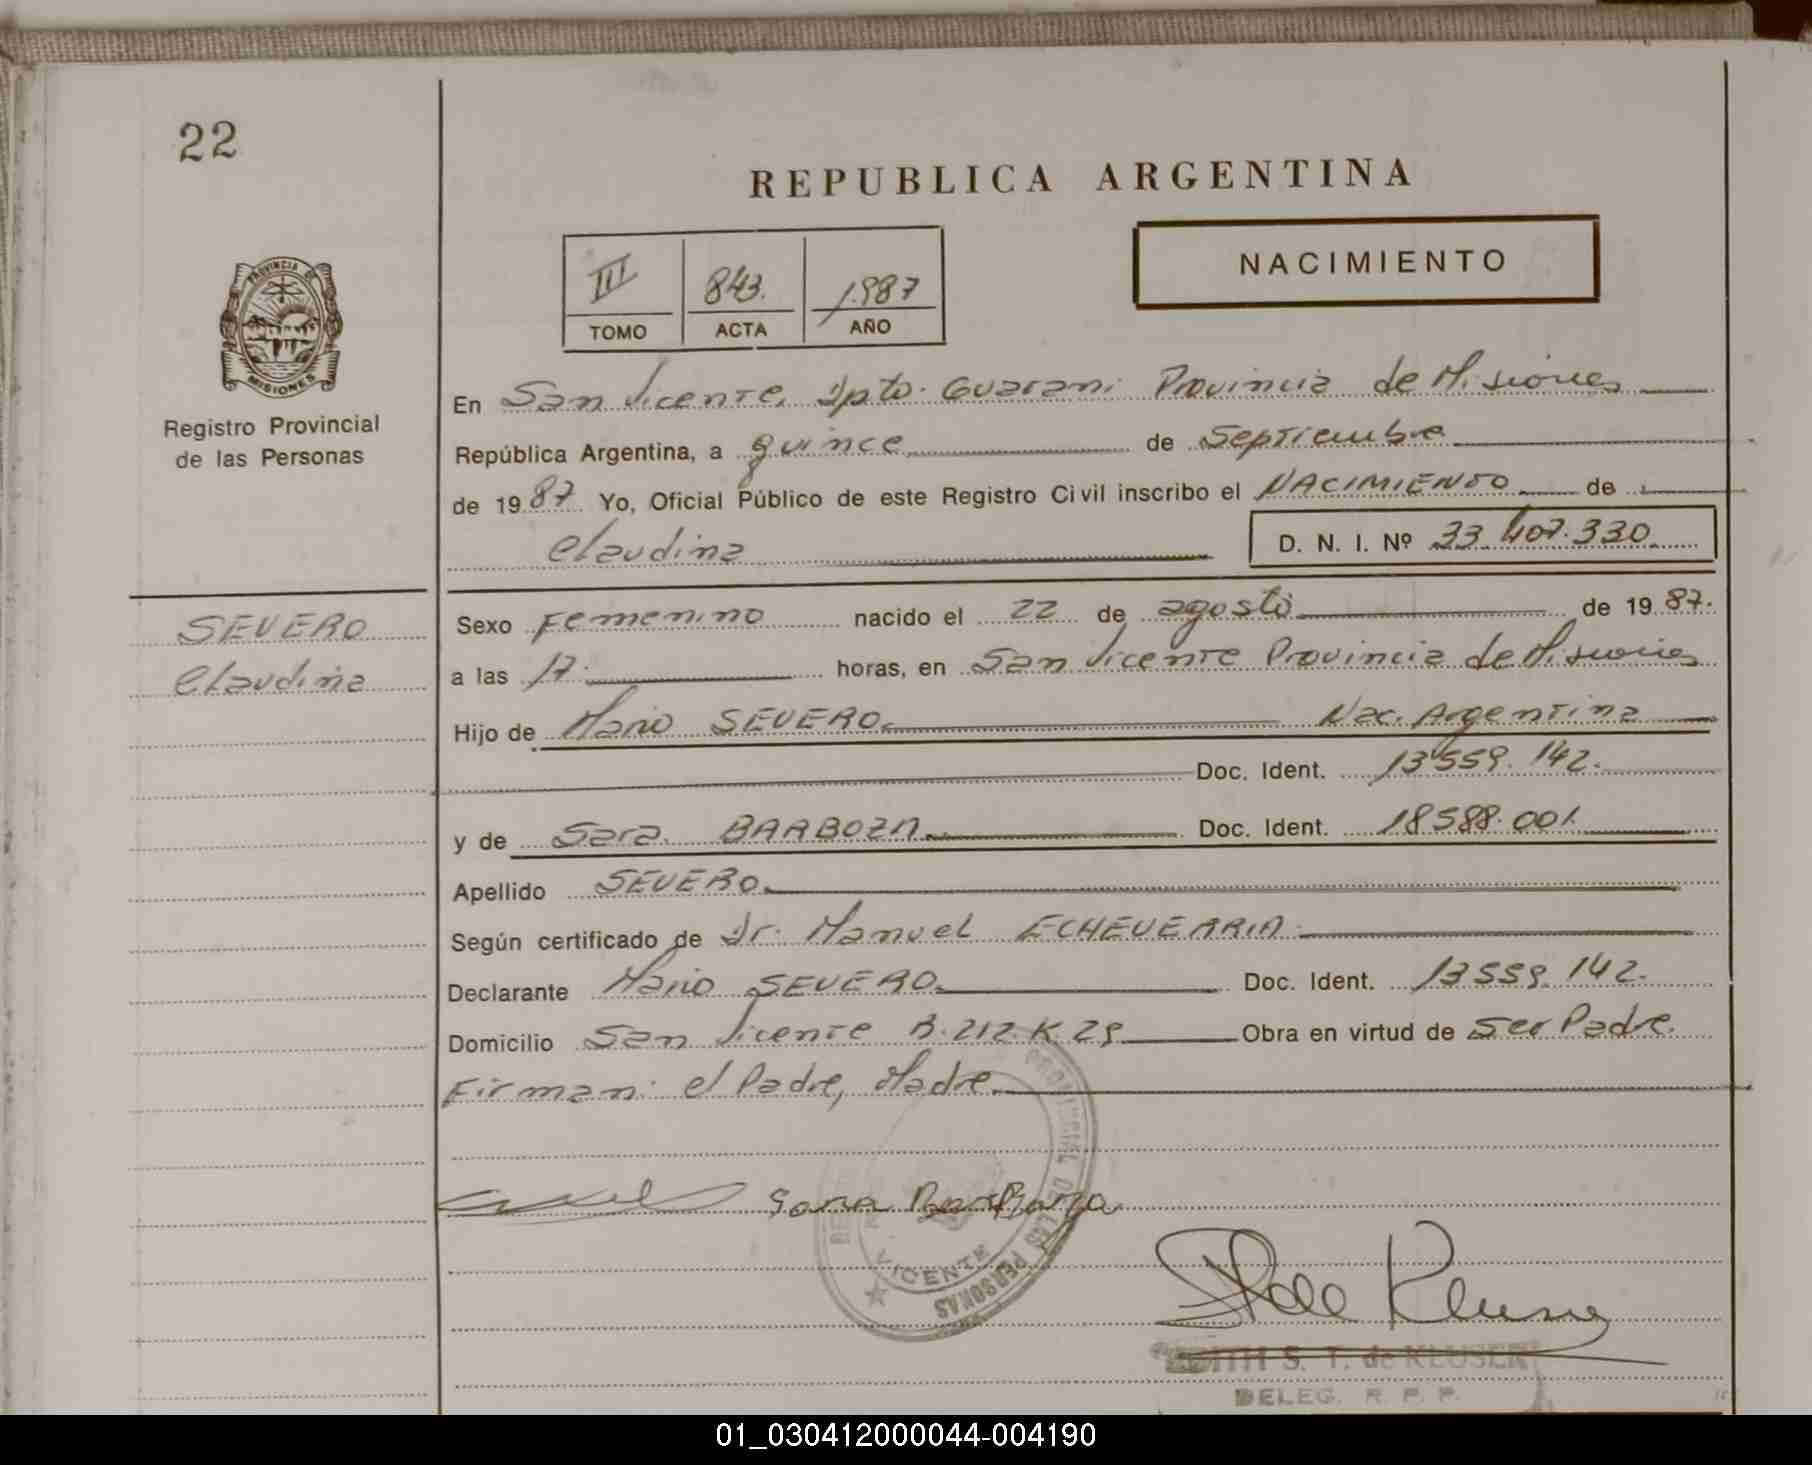 22
REPUBLICA ARGENTINA
NACIMIENTO
III 843. 1.987
TOMO ACTA AÑO
PROVINCIA DE
MISIONES
Registro Provincial
de las Personas
En San Vicente, Dpto. Guarani Provincia de Misiones
República Argentina, a quince de Septiembre
de 1987 Yo, Oficial Público de este Registro Civil inscribo el NACIMIENTO de
Claudina D. N. I. Nº 33.407.330
SEVERO
Claudina
Sexo Femenino nacido el 22 de agosto de 1987.
a las 17. horas, en San Vicente Provincia de Misiones
Hijo de Mario SEVERO. Nac. Argentina
Doc. Ident. 13559.142.
y de Sara BARBOZA Doc. Ident. 18588.001.
Apellido SEVERO.
Según certificado de Dr. Manuel ECHEVERRIA
Declarante Mario SEVERO. Doc. Ident. 13559.142.
Domicilio San Vicente B.212.K.29 Obra en virtud de Ser Padre.
Firman: el Padre, Madre.
Sara BarBoza
PROVINCIAL DE LAS PERSONAS
VICENTE
EDITH S. T. de KLUSER
DELEG. R. P. P.
01_030412000044-004190